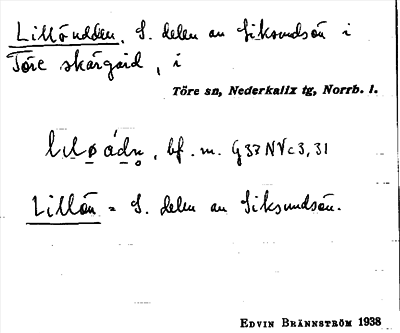 Lillöudden. S. delen av Siksundsön i
Töre skärgård, i
Töre sn, Nederkalix tg, Norrb. l.
bf. m. G33NVc3,31
Lillön = S. delen av Siksundsön.
EDVIN BRÄNNSTRÖM 1938